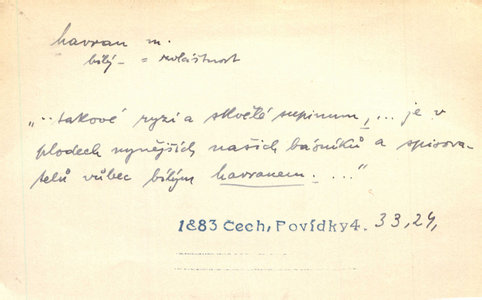 havran m.
bílý – = zvláštnost
„ ··takové ryzí a skvělé supinum, ... je v
plodech nynějších našich básníků a spisova-
telů vůbec bílým havranem. ..."
1883 Čech, Povídky 4. 33, 24,